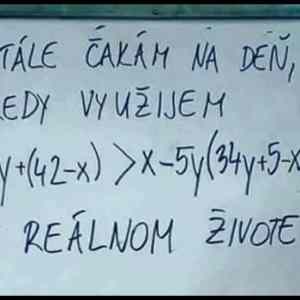 TÁLE ČAKÁM NA DEŇ,
EDY VYUŽIJEM
y+(42-x) > x-5y(34y+5-x
REÁLNOM ŽIVOTE